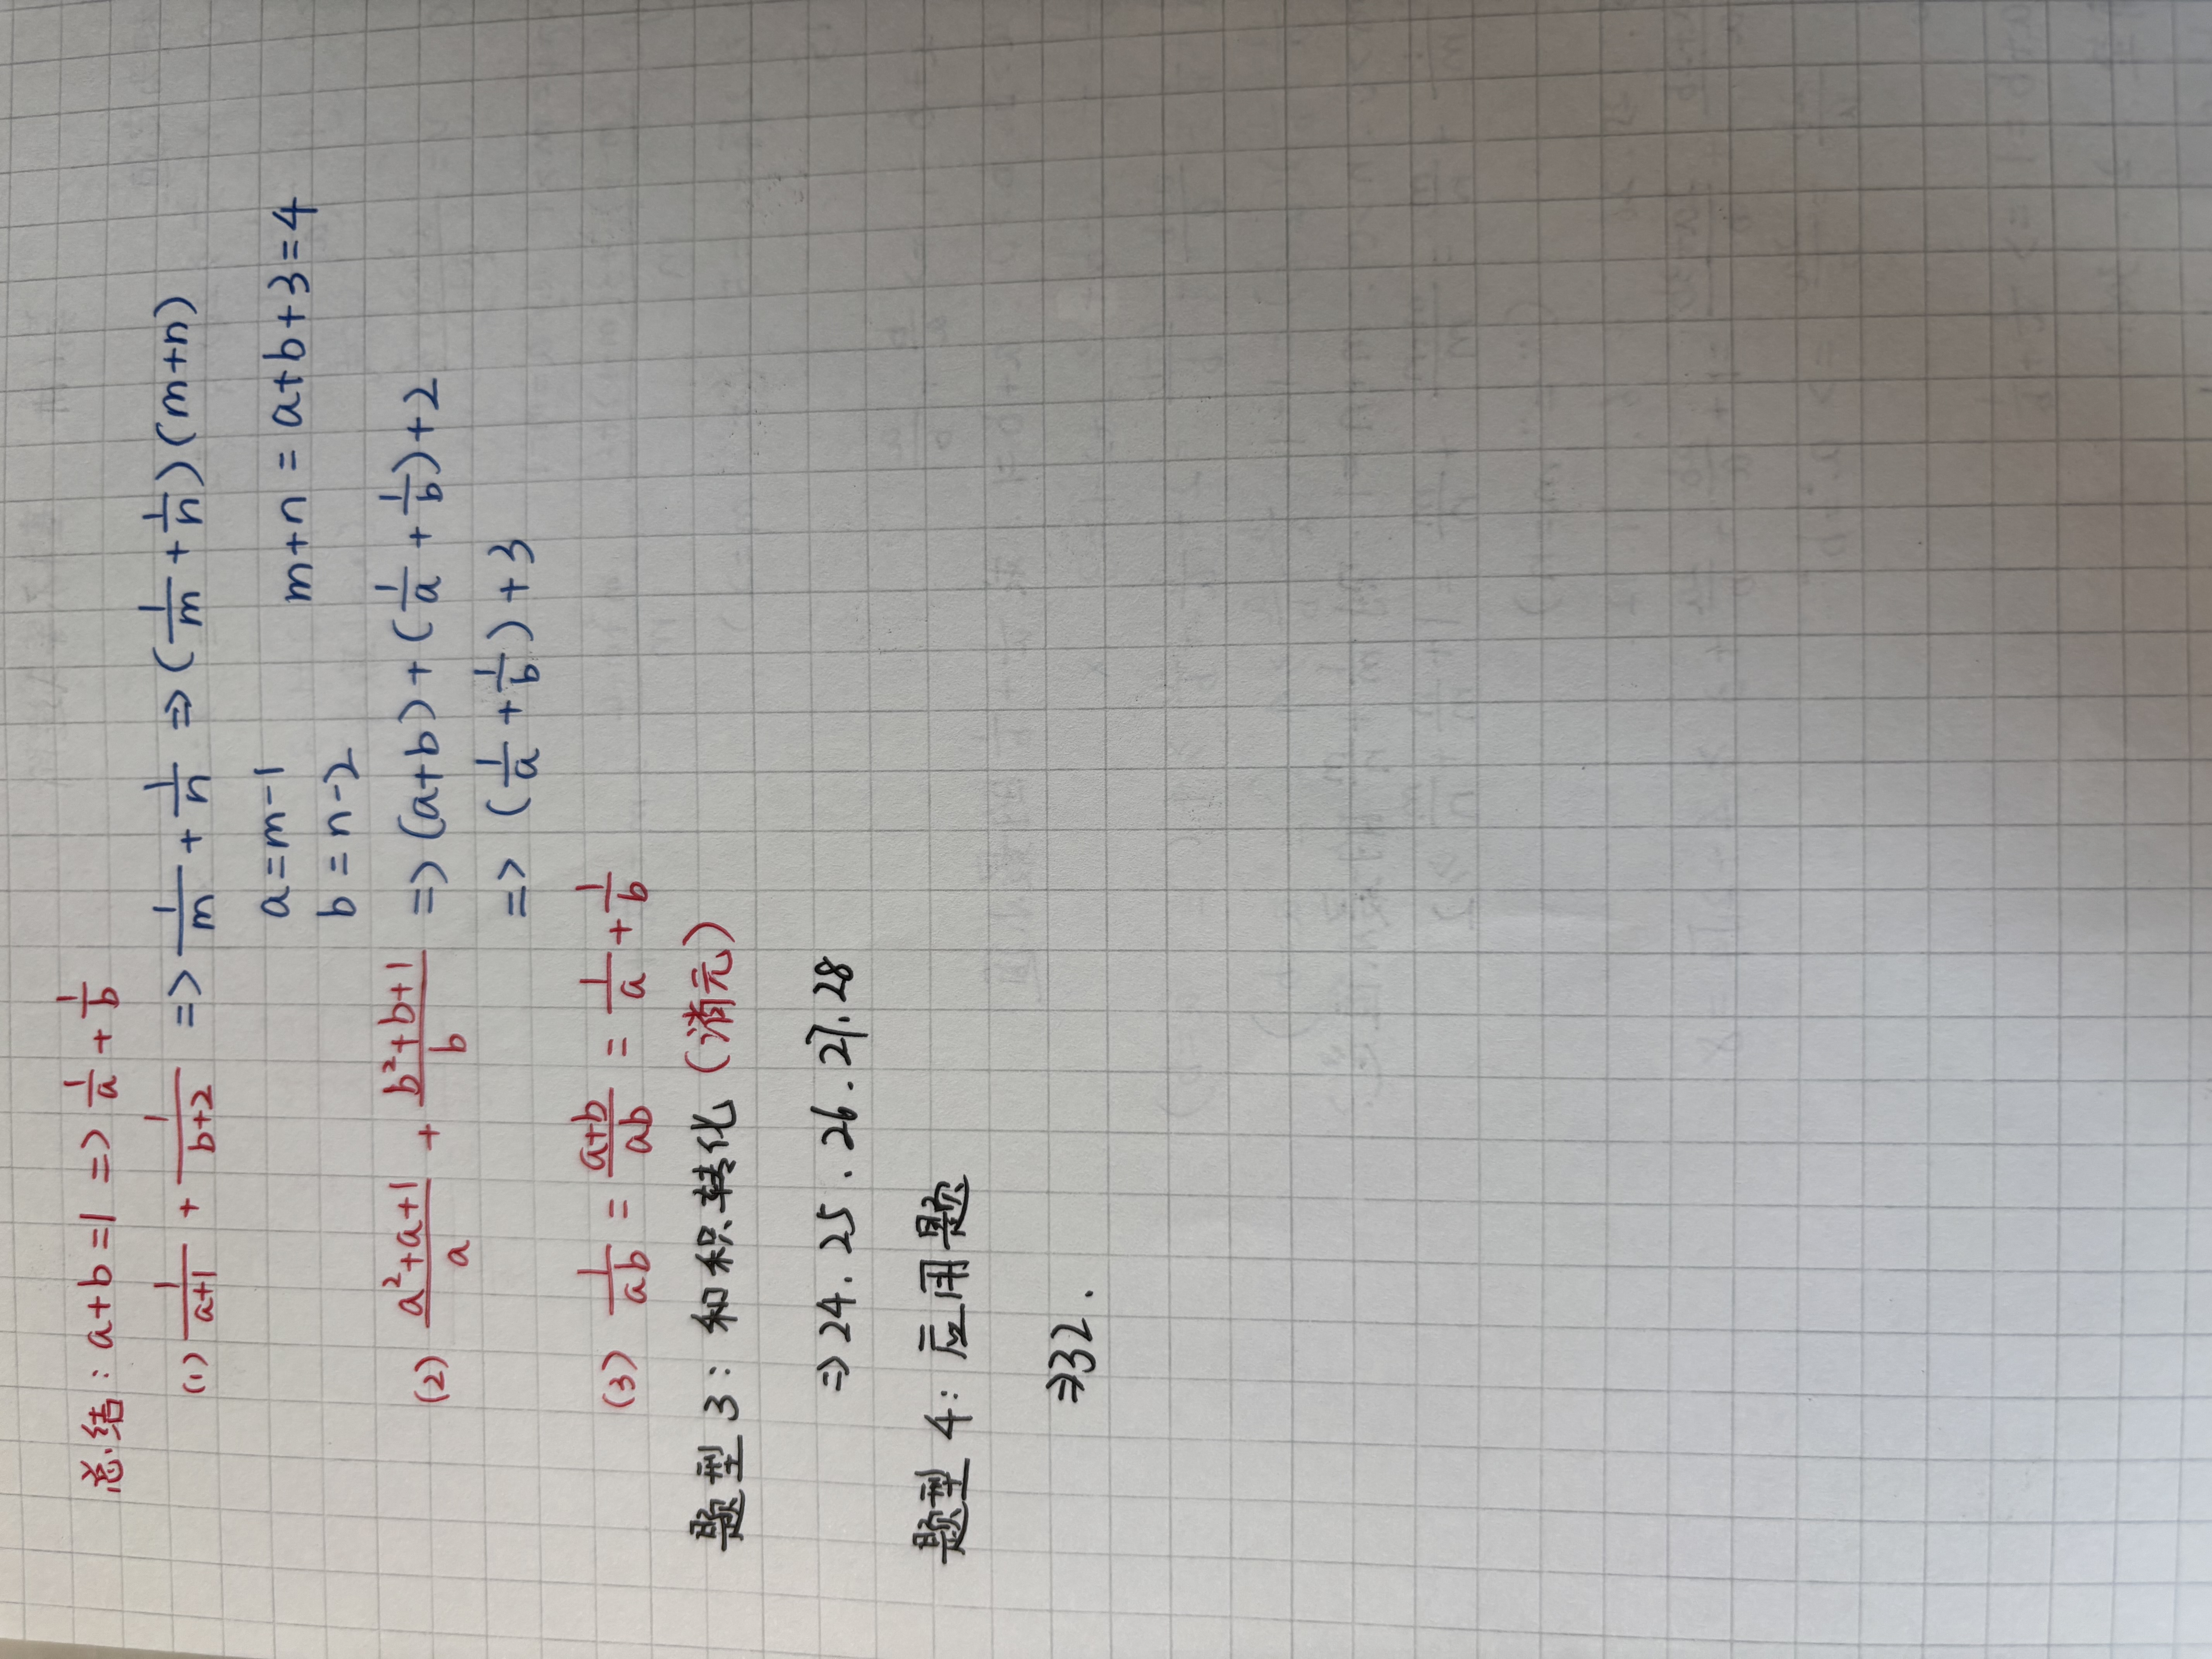 总结：a+b=1 => 1/a + 1/b
(1) 1/(a+1) + 1/(b+2) => 1/m + 1/n => (1/m + 1/n)(m+n)
a=m-1 m+n=a+b+3=4
b=n-2
(2) (a²+a+1)/a + (b²+b+1)/b => (a+b)+(1/a + 1/b)+2
=> (1/a + 1/b)+3
(3) 1/ab = (a+b)/ab = 1/a + 1/b
题型3：和积转化（消元）
=> 24.25.26.27.28
题型4：应用题
=> 32.